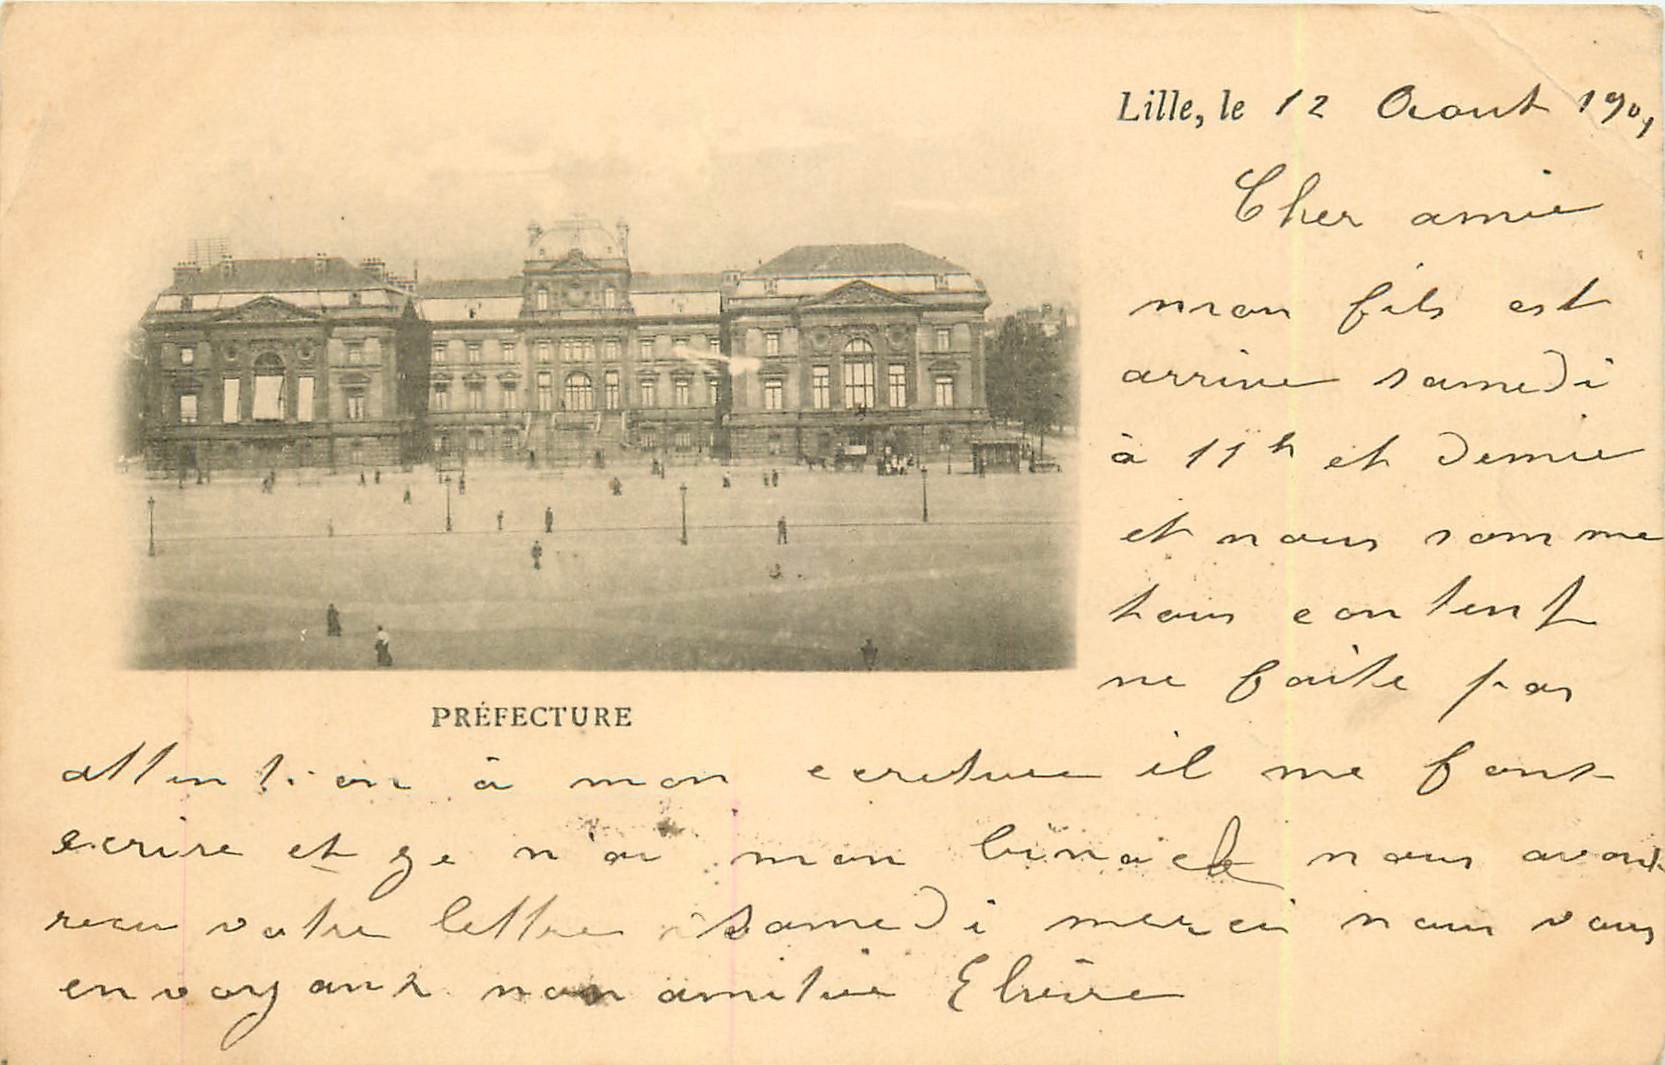 Lille, le 12 Aout 1901
Cher amie
mon fils est
arrive samedi
à 11h et demie
et nous somme
tous content
ne faite pas
PRÉFECTURE
attention à mon ecriture il me font
ecrire et ge n'ai mon binocle nous avont
recu votre lettre samedi merci nous vous
envoyant non amitie Elvire